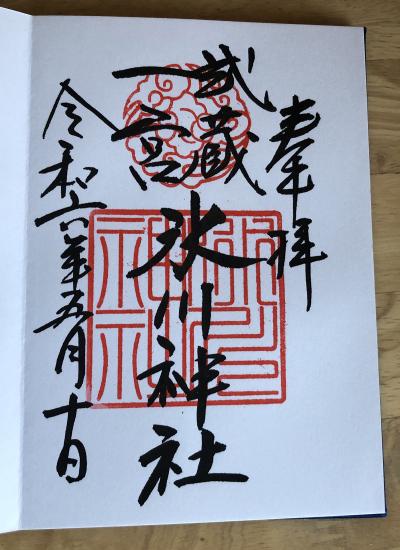 奉拝
武蔵
一宮
氷川神社
令和六年五月十日
氷川
神社